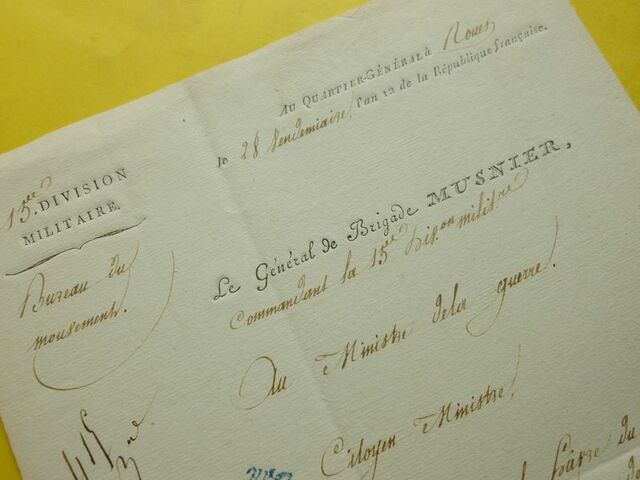 AU QUARTIER-GÉNÉRAL à Rouen
le 28 Vendemiaire, l'an 12 de la République française.
15.eme DIVISION
MILITAIRE.
Le Général de Brigade MUSNIER,
Commandant la 15eme Div.on milit.re
Bureau du
mouvement.
Au Ministre de la guerre.
Citoyen Ministre,
du